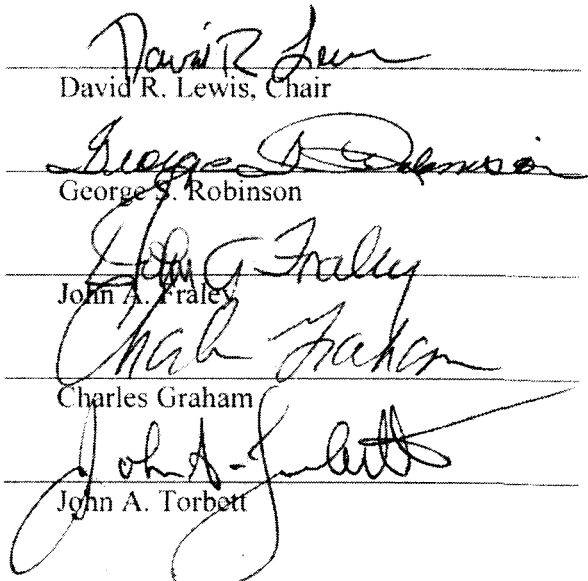 David R. Lewis
David R. Lewis, Chair
George S. Robinson
George S. Robinson
John A Fraley
John A. Fraley
Charles Graham
Charles Graham
John A. Torbett
John A. Torbett